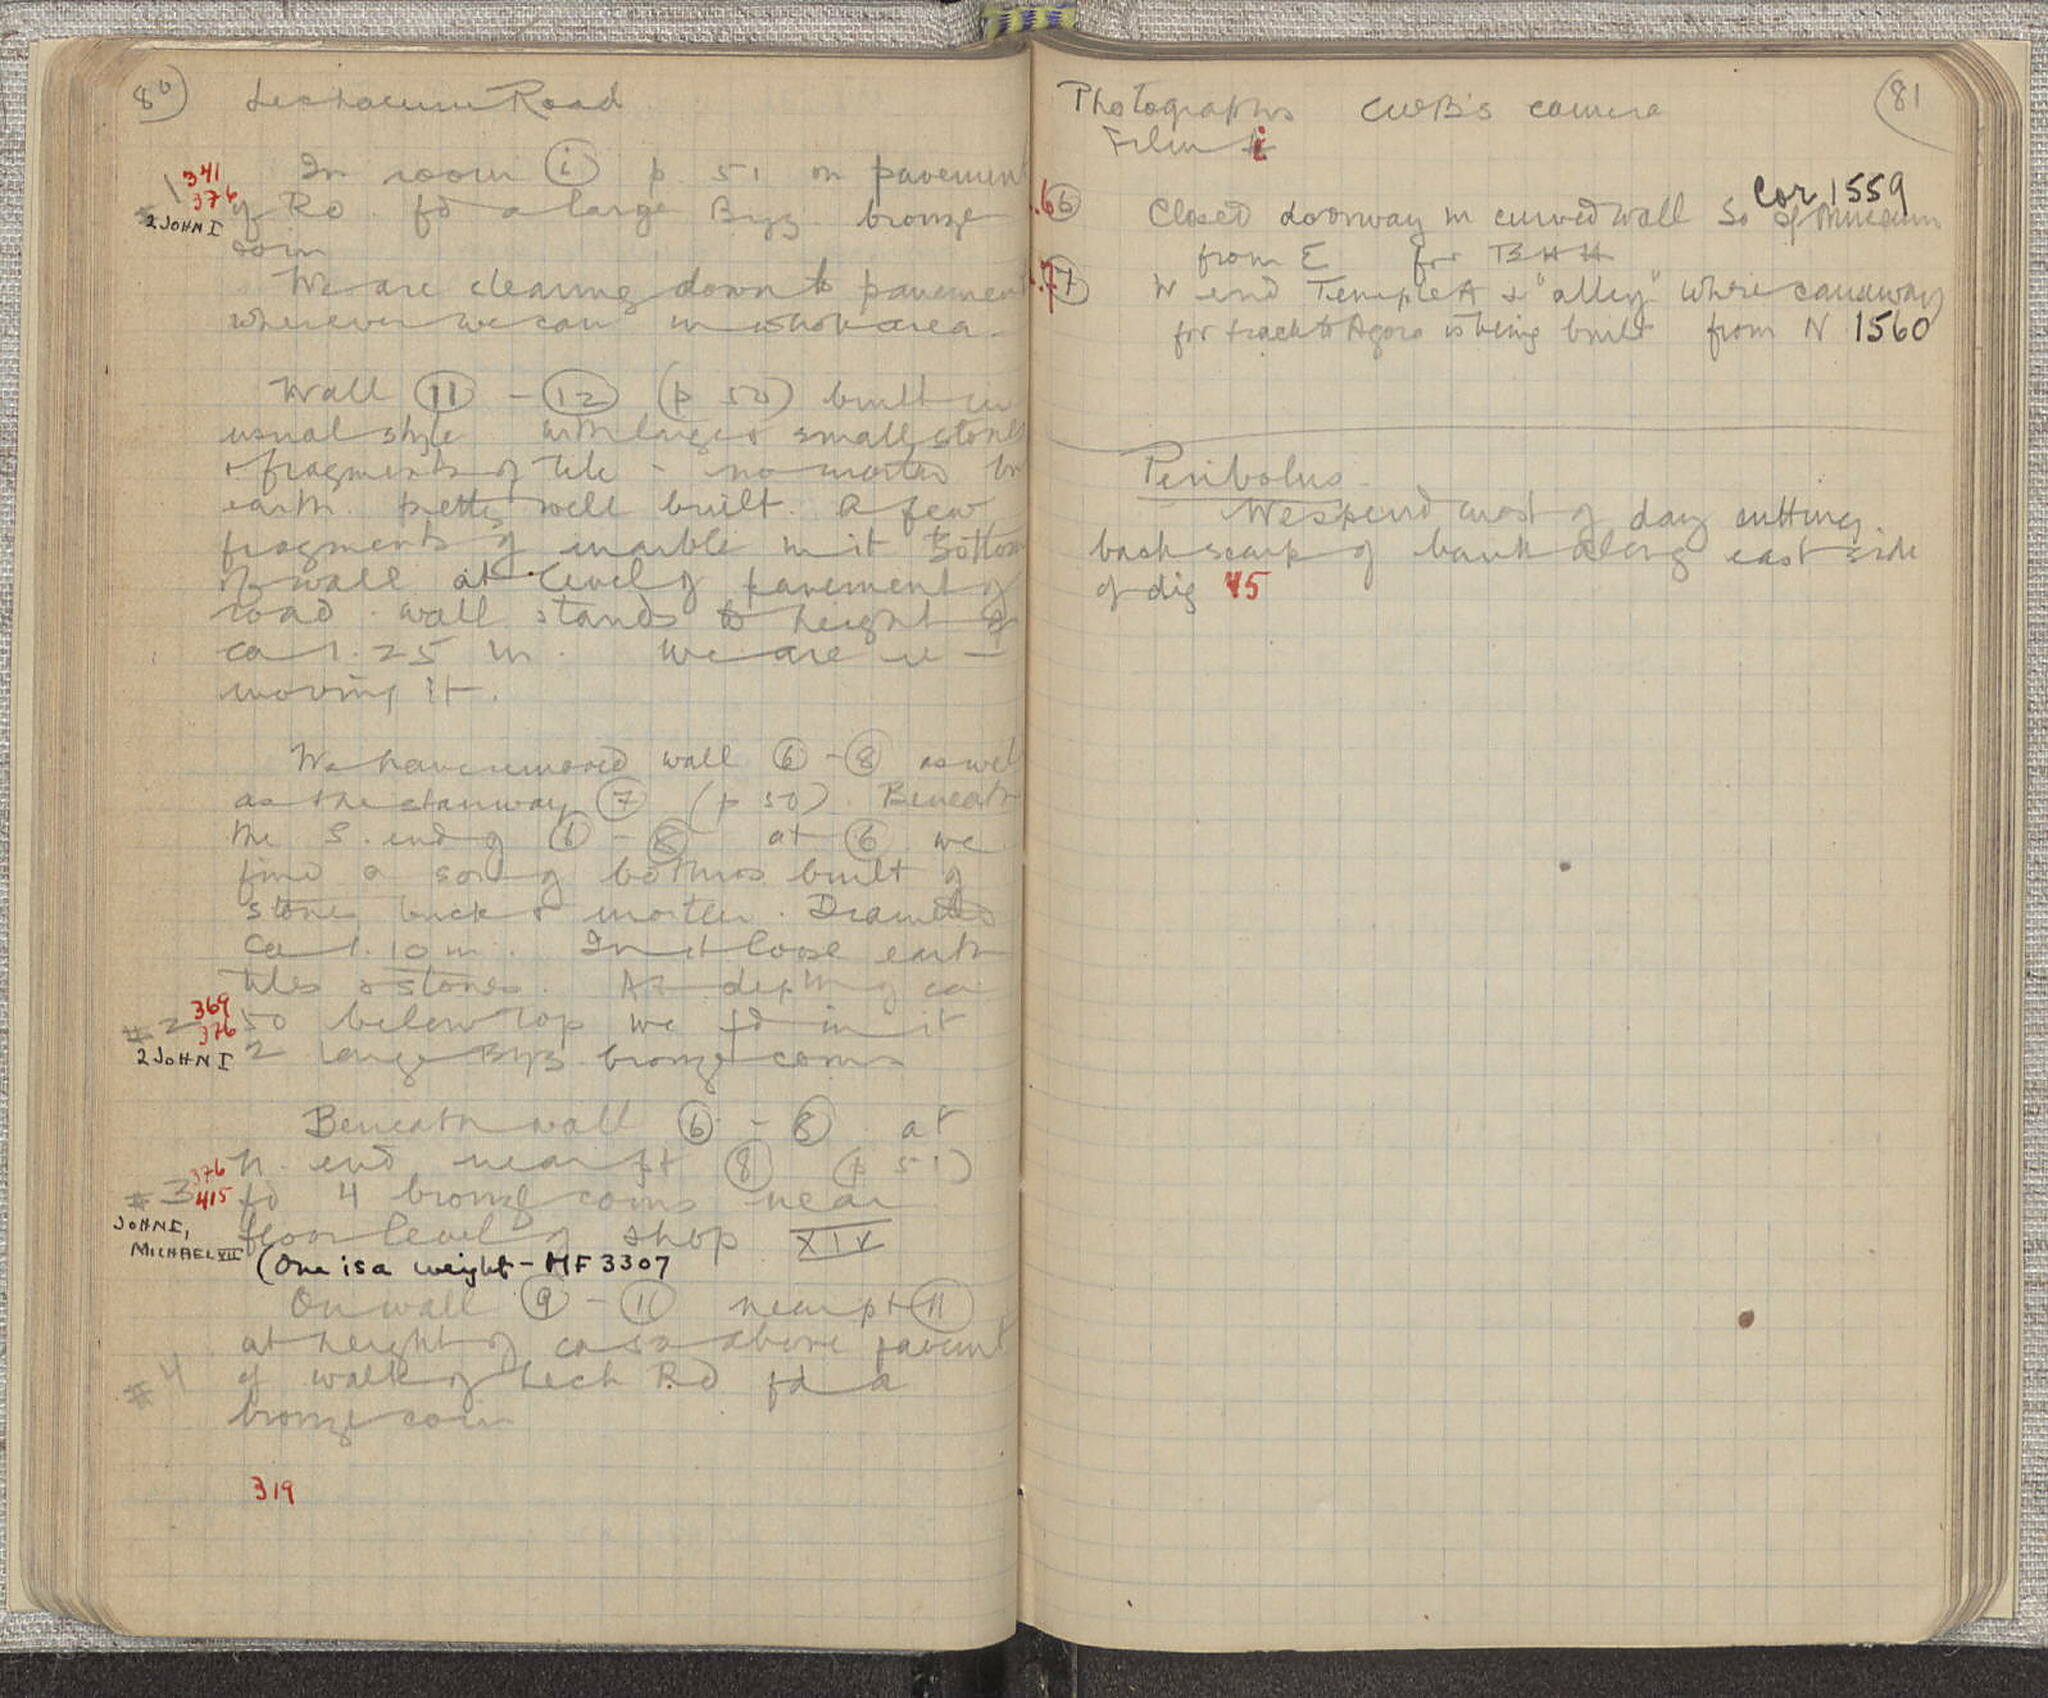 80) Lechaeum Road
In room (i) p 51 on pavement
341
376
#1
2 JOHN I
of Rd. fd a large Byz bronze
coin
We are clearing down to pavement
wherever we can in whole area.
Wall (11) - (12) (p 50) built in
usual style with large & small stones
& fragments of tile - no mortar but
earth. pretty well built. A few
fragments of marble in it Bottom
of wall at level of pavement of
road. Wall stands to height of
ca 1.25 m. We are re-
moving it.
We have removed wall (6) - (8) as well
as the stairway (7) (p 50). Beneath
the S. end of (6) - (8) at (6) we
find a sort of bothros built of
stones brick & mortar. Diameter
ca 1.10 m. In it loose earth
tiles & stones. At depth of ca
369
376
#2
2 JOHN I
50 below top we fd in it
2 large Byz bronze coins
Beneath wall (6) - (8) at
N. end near pt (8) (p 51)
376
415
#3
JOHN I,
MICHAEL VII
fd 4 bronze coins near
floor level of shop XIV
(One is a weight - MF 3307
On wall (9) - (11) near pt (11)
at height of ca 50 above pavemt
#4
of walk of Lech Rd fd a
bronze coin
319
81
Photographs CWB's camera
Film i
.6 (6) Closed doorway in curved wall So of Museum
Cor 1559
from E for BHH
.7 (7) W end Temple A & "alley" where causeway
for track to Agora is being built from N 1560
Peribolus
We spend most of day cutting
back scarp of bank along east side
of dig 45